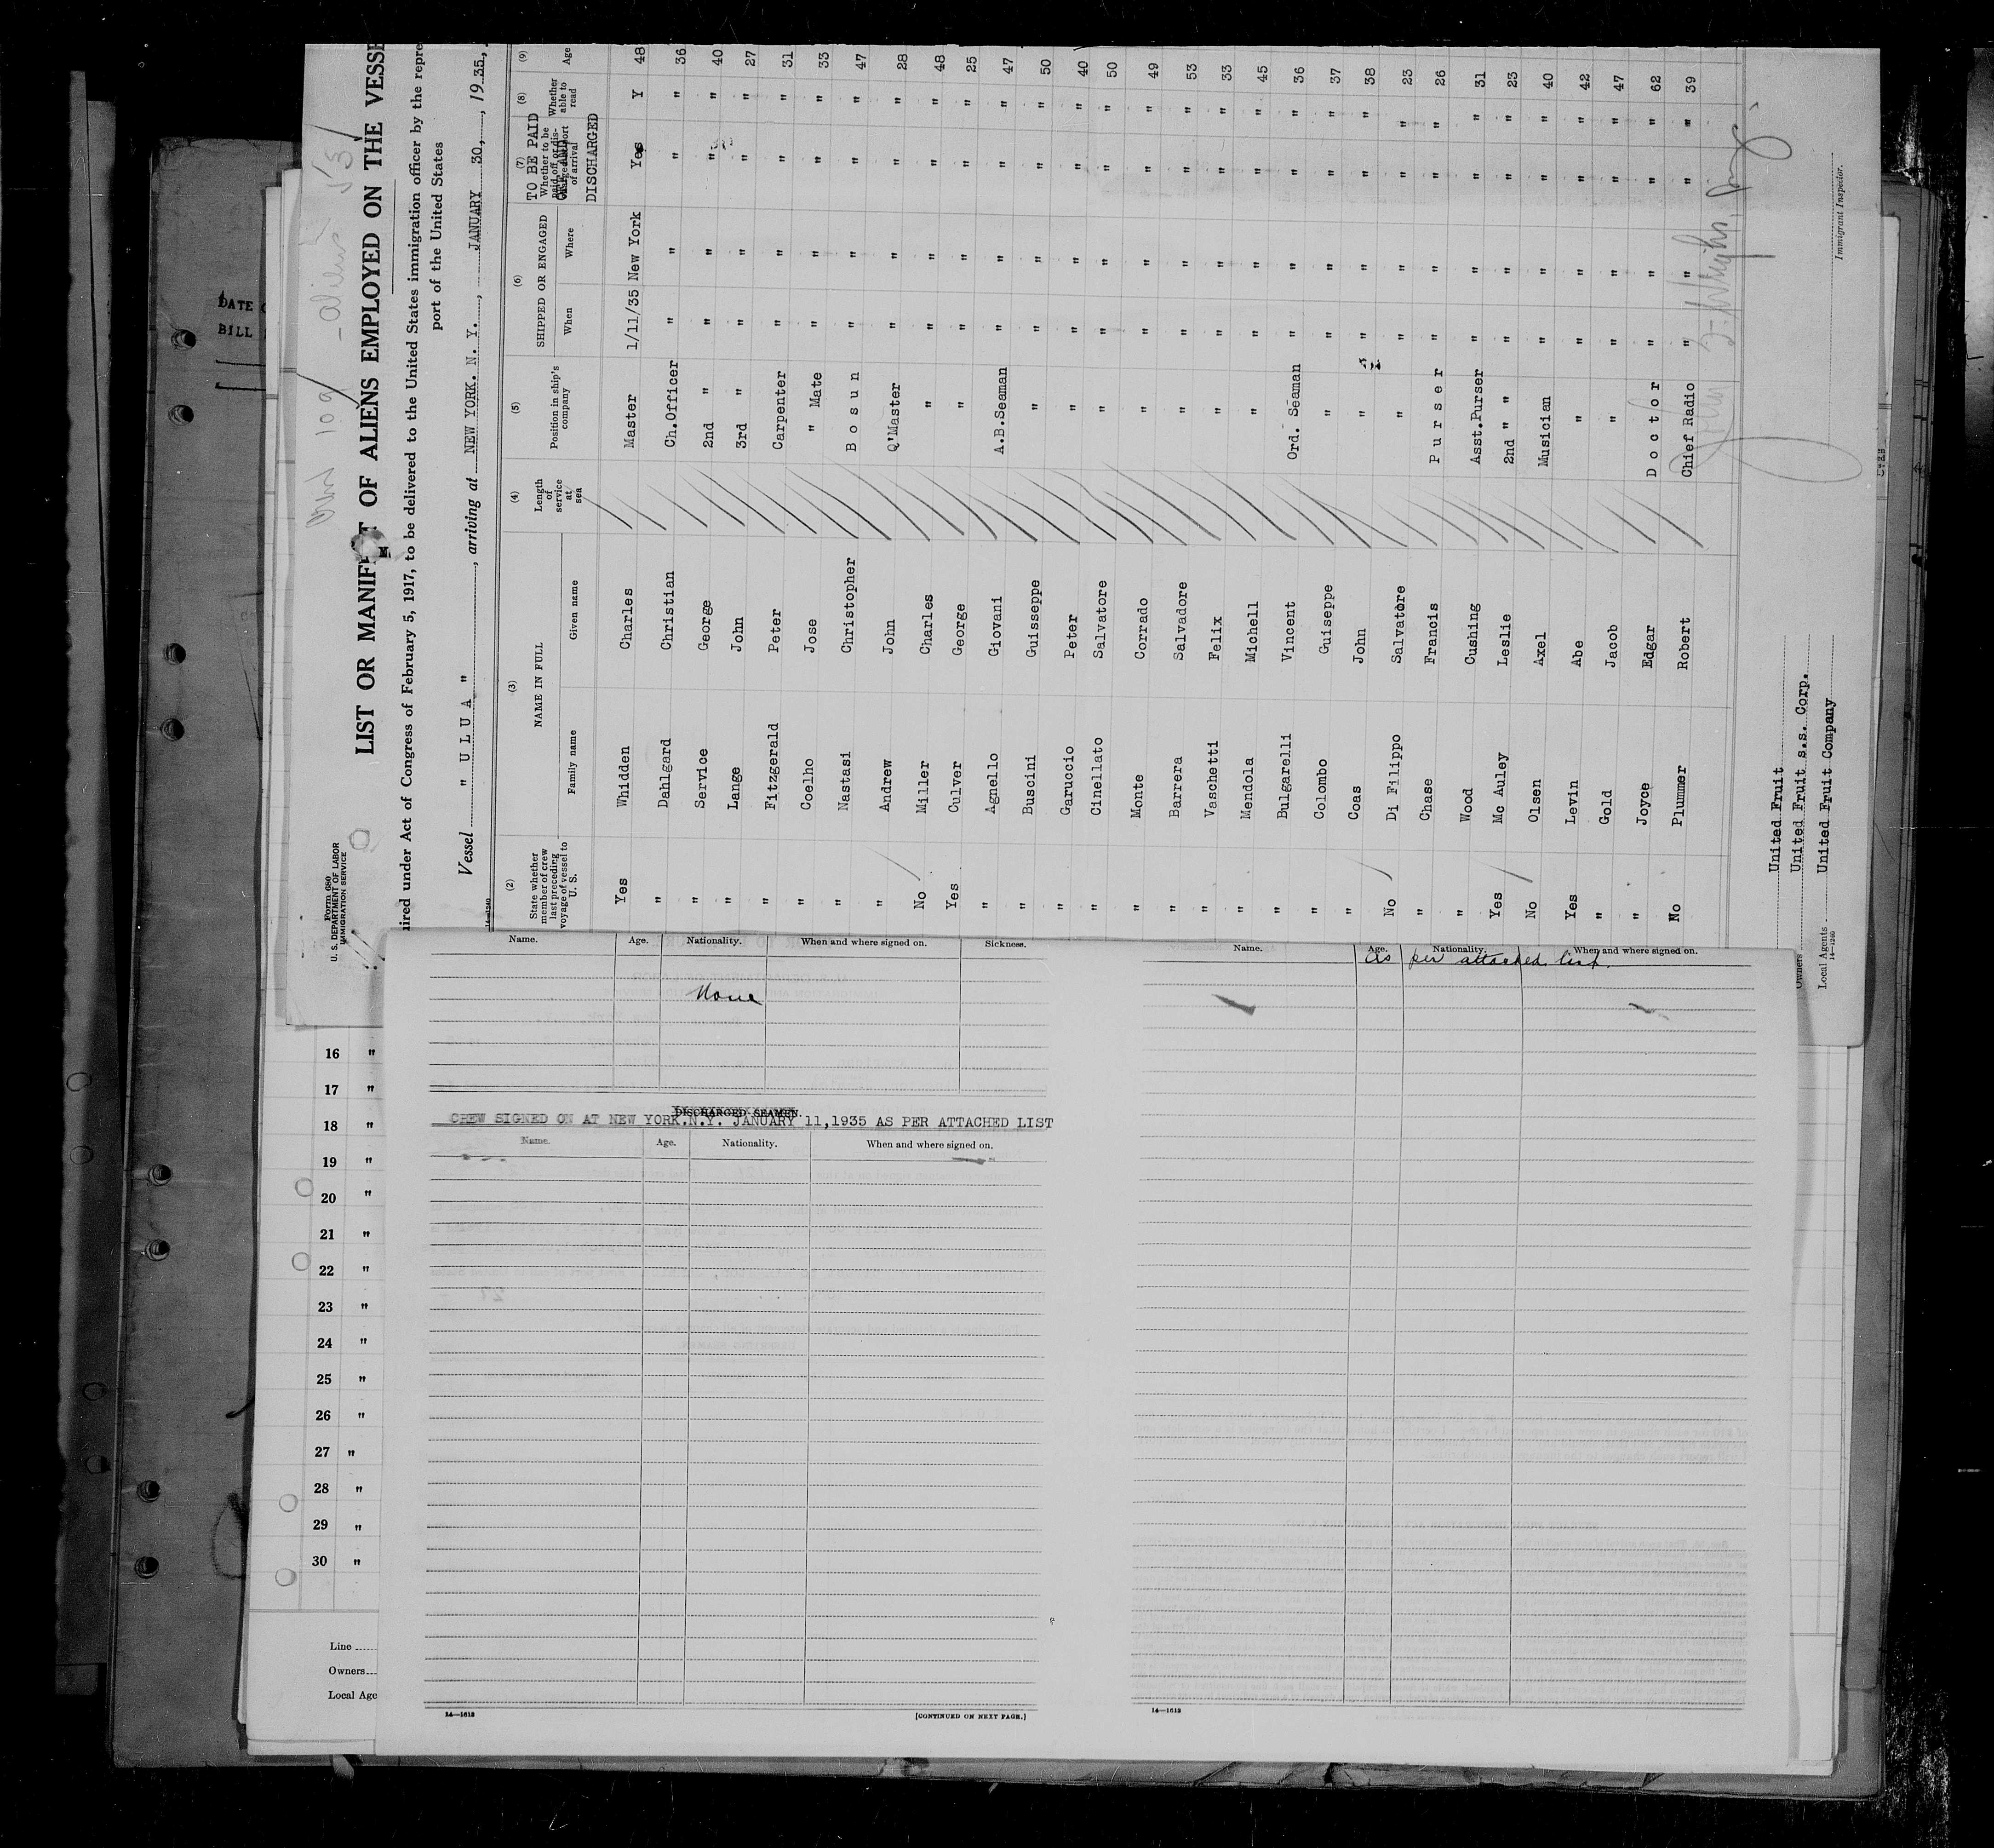 Form 680
U. S. DEPARTMENT OF LABOR
IMMIGRATION SERVICE
LIST OR MANIF T OF ALIENS EMPLOYED ON THE VESSE
ired under Act of Congress of February 5, 1917, to be delivered to the United States immigration officer by the repre
port of the United States
Vessel " U L U A " , arriving at NEW YORK. N. Y. , JANUARY 30, , 1935,
14-1240
(2) (3) (4) (5) (6) (7) (8) (9)
State whether member of crew last preceding voyage of vessel to U. S. NAME IN FULL Length of service at sea Position in ship's company SHIPPED OR ENGAGED TO BE PAID Whether to be of arrival DISCHARGED Whether able to read Age
Family name Given name When Where
Yes Whidden Charles Master 1/11/35 New York Yes Y 48
" Dahlgard Christian Ch.Officer " " " " 36
" Service George 2nd " " " " " 40
" Lange John 3rd " " " " " 27
" Fitzgerald Peter Carpenter " " " " 31
" Coelho Jose " Mate " " " " 33
" Nastasi Christopher B o s u n " " " " 47
" Andrew John Q'Master " " " " 28
No Miller Charles " " " " " 48
Yes Culver George " " " " " 25
" Agnello Giovani A.B.Seaman " " " " 47
" Buscini Guisseppe " " " " " 50
" Garuccio Peter " " " " " 40
" Cinellato Salvatore " " " " " 50
" Monte Corrado " " " " " 49
" Barrera Salvadore " " " " " 53
" Vaschetti Felix " " " " " 33
" Mendola Michell " " " " " 45
" Bulgarelli Vincent Ord. Seaman " " " " 36
" Colombo Guiseppe " " " " " 37
" Coas John " " " " " 38
No Di Filippo Salvatore " " " " " 23
" Chase Francis P u r s e r " " " " 26
" Wood Cushing Asst.Purser " " " " 31
Yes Mc Auley Leslie 2nd " " " " " " 23
No Olsen Axel Musician " " " " 40
Yes Levin Abe " " " " " 42
" Gold Jacob " " " " " 47
" Joyce Edgar D o c t o r " " " " 62
No Plummer Robert Chief Radio " " " " 39
United Fruit
Owners United Fruit s.s. Corp.
Local Agents United Fruit Company
14-1240
Immigrant Inspector.
DATE
BILL
Name. Age. Nationality. When and where signed on. Sickness.
None
DISCHARGED SEAMEN.
CREW SIGNED ON AT NEW YORK.N.Y. JANUARY 11,1935 AS PER ATTACHED LIST
Name. Age. Nationality. When and where signed on.
14—1613 [CONTINUED ON NEXT PAGE.]
Name. Age. Nationality. When and where signed on.
As per attached list
14—1613
16 "
17 "
18 "
19 "
20 "
21 "
22 "
23 "
24 "
25 "
26 "
27 "
28 "
29 "
30 "
Line
Owners
Local Age